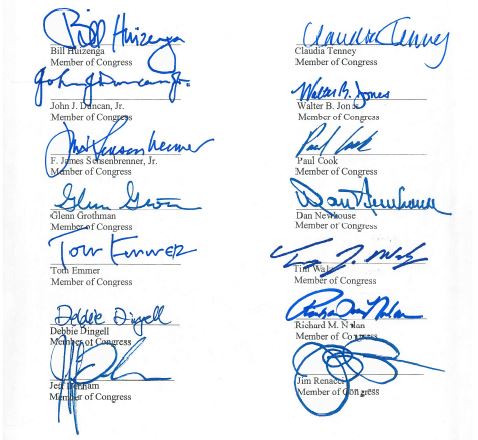 Bill Huizenga
Bill Huizenga
Member of Congress
John J Duncan, Jr.
John J. Duncan, Jr.
Member of Congress
F. James Sensenbrenner, Jr.
Member of Congress
Glenn Grothman
Member of Congress
Tom Emmer
Tom Emmer
Member of Congress
Debbie Dingell
Debbie Dingell
Member of Congress
Jeff Denham
Member of Congress
Claudia Tenney
Claudia Tenney
Member of Congress
Walter B. Jones
Walter B. Jones
Member of Congress
Paul Cook
Paul Cook
Member of Congress
Dan Newhouse
Dan Newhouse
Member of Congress
Tim Walz
Member of Congress
Richard M. Nolan
Member of Congress
Jim Renacci
Member of Congress